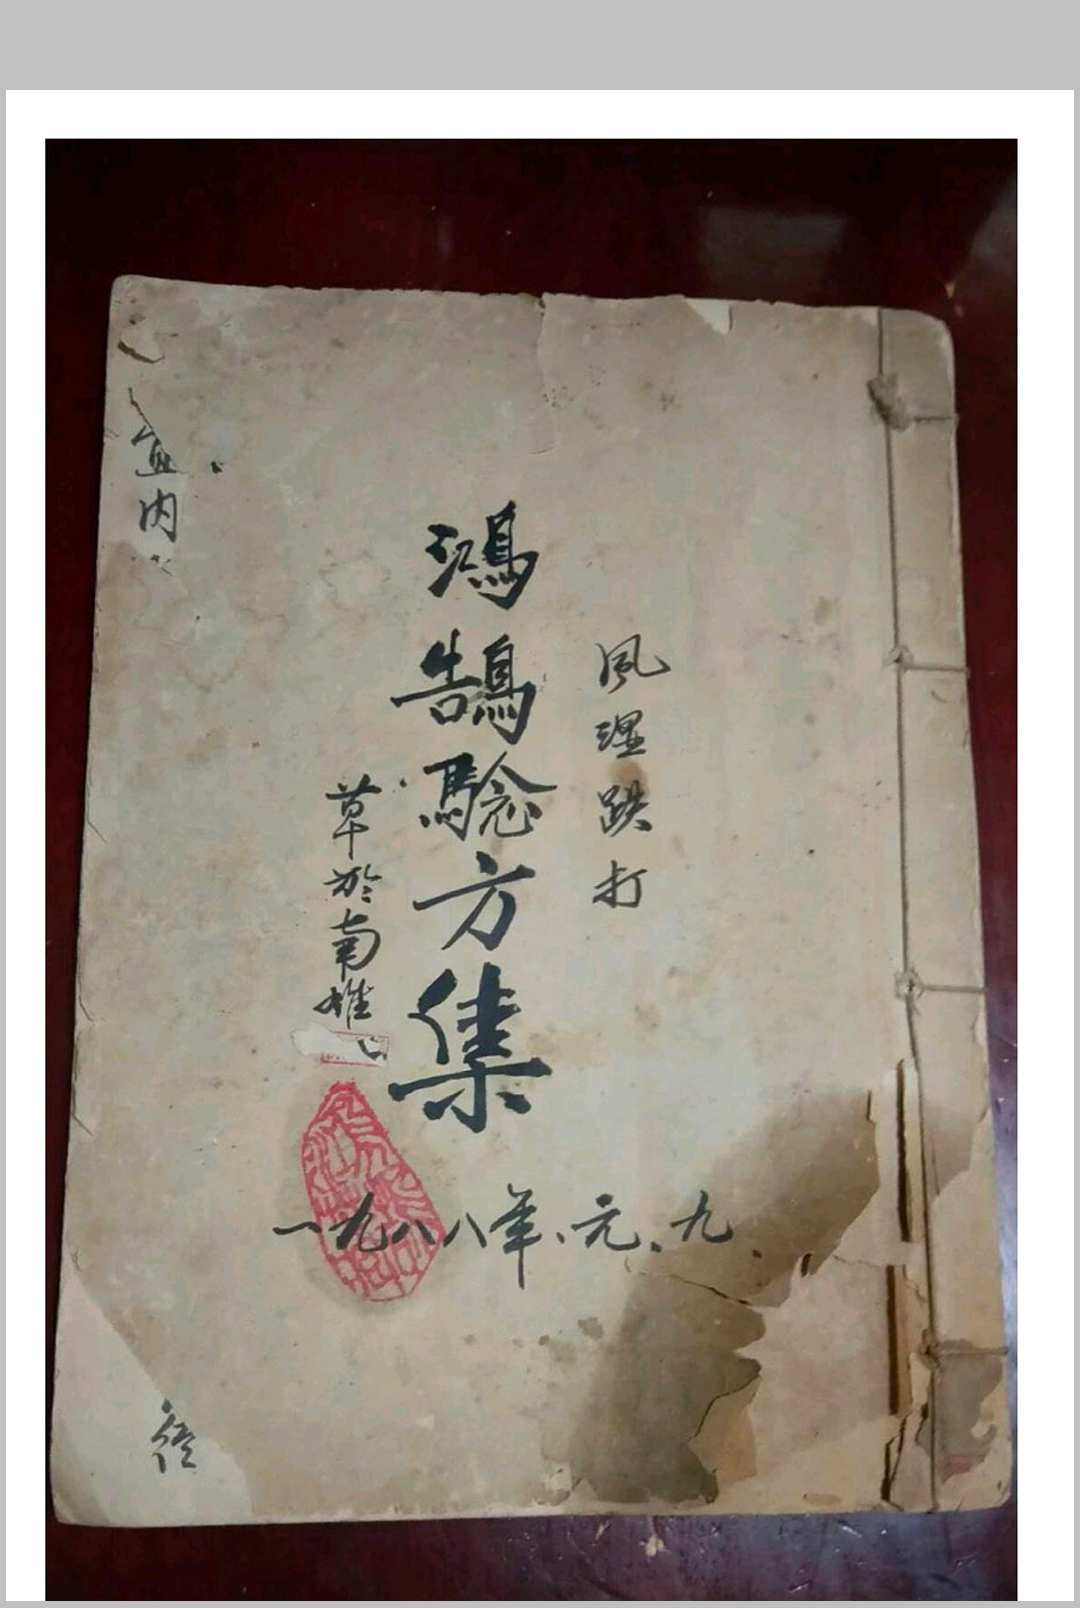 風湿跌打
鴻鵠驗方集
草於南雄
一九八八年、元、九
内